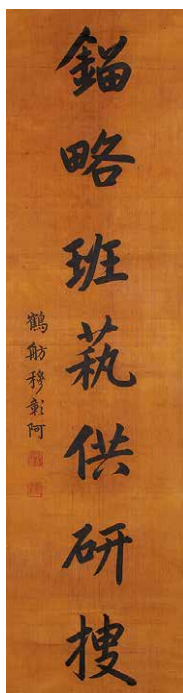 鎦略班蓺供研搜
鶴舫穆彰阿